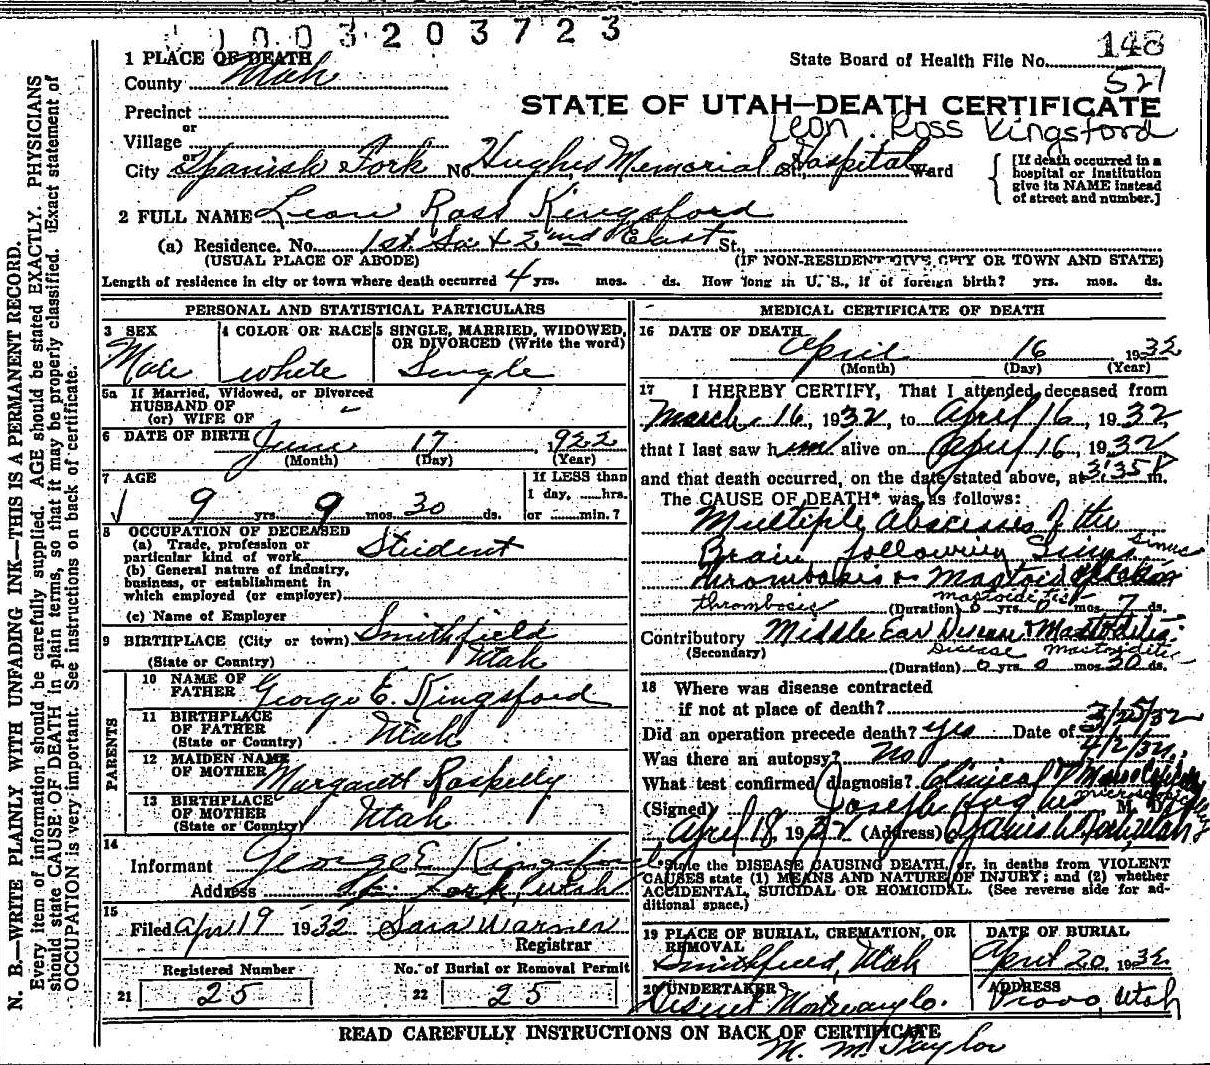 1003203723
148
State Board of Health File No.
527
1 PLACE OF DEATH
County Utah
STATE OF UTAH—DEATH CERTIFICATE
Precinct
Leon Ross Kingsford
or
Village
or
City Spanish Fork No. Hughes Memorial Hospital St., Ward
[If death occurred in a hospital or institution give its NAME instead of street and number.]
2 FULL NAME Leon Ross Kingsford
(a) Residence. No. 1st So. & 2nd East St.,
(USUAL PLACE OF ABODE) (IF NON-RESIDENT GIVE CITY OR TOWN AND STATE)
Length of residence in city or town where death occurred 4 yrs. mos. ds. How long in U. S., if of foreign birth? yrs. mos. ds.
PERSONAL AND STATISTICAL PARTICULARS
3 SEX Male
4 COLOR OR RACE white
5 SINGLE, MARRIED, WIDOWED, OR DIVORCED (Write the word) Single
5a If Married, Widowed, or Divorced
HUSBAND OF
(or) WIFE OF
6 DATE OF BIRTH June 17, 1922
(Month) (Day) (Year)
7 AGE
9 yrs. 9 mos. 30 ds.
If LESS than
1 day, hrs.
or min.?
8 OCCUPATION OF DECEASED
(a) Trade, profession or
particular kind of work Student
(b) General nature of industry,
business, or establishment in
which employed (or employer)
(c) Name of Employer
9 BIRTHPLACE (City or town) Smithfield
(State or Country) Utah
PARENTS
10 NAME OF
FATHER George E. Kingsford
11 BIRTHPLACE
OF FATHER
(State or Country) Utah
12 MAIDEN NAME
OF MOTHER Margarett
13 BIRTHPLACE
OF MOTHER
(State or Country) Utah
14
Informant George E Kingsford
Address Sp. Fork, Utah
15
Filed Apr 19 1932 Sara Warner
Registrar
Registered Number
21 25
No. of Burial or Removal Permit
22 25
MEDICAL CERTIFICATE OF DEATH
16 DATE OF DEATH
April 16, 1932
(Month) (Day) (Year)
17 I HEREBY CERTIFY, That I attended deceased from
March 16, 1932, to April 16, 1932,
that I last saw him alive on April 16, 1932
and that death occurred, on the date stated above, at 3:35 P m.
The CAUSE OF DEATH* was as follows:
Multiple Abscesses of the
Brain following Sinus Sinus
thrombosis & Mastoid
thrombosis mastoiditis
(Duration) 0 yrs. 0 mos. 7 ds.
Contributory Middle Ear Disease & Mastoiditis
(Secondary) Disease Mastoiditis
(Duration) 0 yrs. 0 mos. 30 ds.
18 Where was disease contracted
if not at place of death?
3/25/32
Did an operation precede death? yes Date of
4/2/32
Was there an autopsy? No
What test confirmed diagnosis? Clinical &
(Signed) Joseph Hughes M. D.
April 18, 1932 (Address) Spanish Fork, Utah
*State the DISEASE CAUSING DEATH, or, in deaths from VIOLENT
CAUSES state (1) MEANS AND NATURE OF INJURY; and (2) whether
ACCIDENTAL, SUICIDAL OR HOMICIDAL. (See reverse side for ad-
ditional space.)
19 PLACE OF BURIAL, CREMATION, OR
REMOVAL
Smithfield, Utah
DATE OF BURIAL
April 20, 1932
20 UNDERTAKER
Deseret Mortuary Co.
ADDRESS
Provo, Utah
READ CAREFULLY INSTRUCTIONS ON BACK OF CERTIFICATE
M. M. Taylor
N. B.—WRITE PLAINLY WITH UNFADING INK—THIS IS A PERMANENT RECORD.
Every item of information should be carefully supplied. AGE should be stated EXACTLY. PHYSICIANS
should state CAUSE OF DEATH in plain terms, so that it may be properly classified. Exact statement of
OCCUPATION is very important. See instructions on back of certificate.